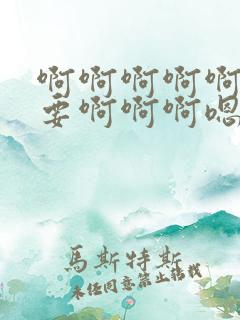 啊啊啊啊啊
要啊啊啊嗯
馬斯特斯
未经同意禁止转载